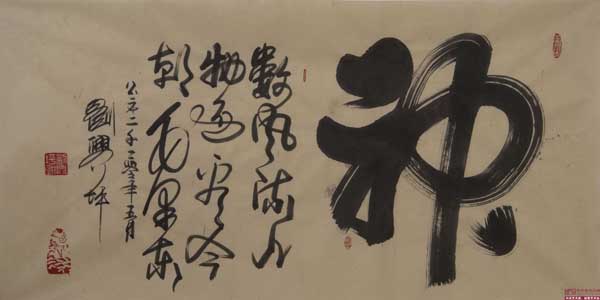 神
數風流人
物還看今
朝毛澤東
公元二千一零年五月
劉興坪